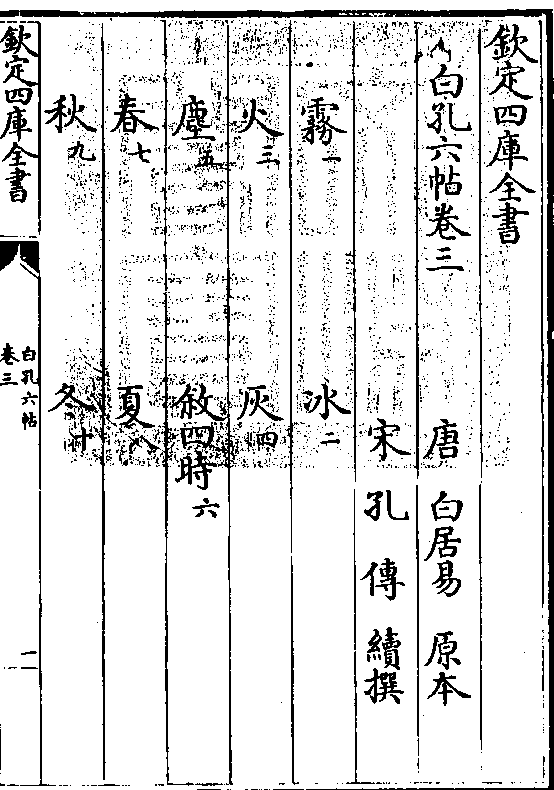 欽定四庫全書
白孔六帖卷三
唐 白居易 原本
宋 孔傳 續撰
霧一 冰二
火三 灰四
塵五 敘四時六
春七 夏八
秋九 冬十
欽定四庫全書
白孔六帖
卷三
一